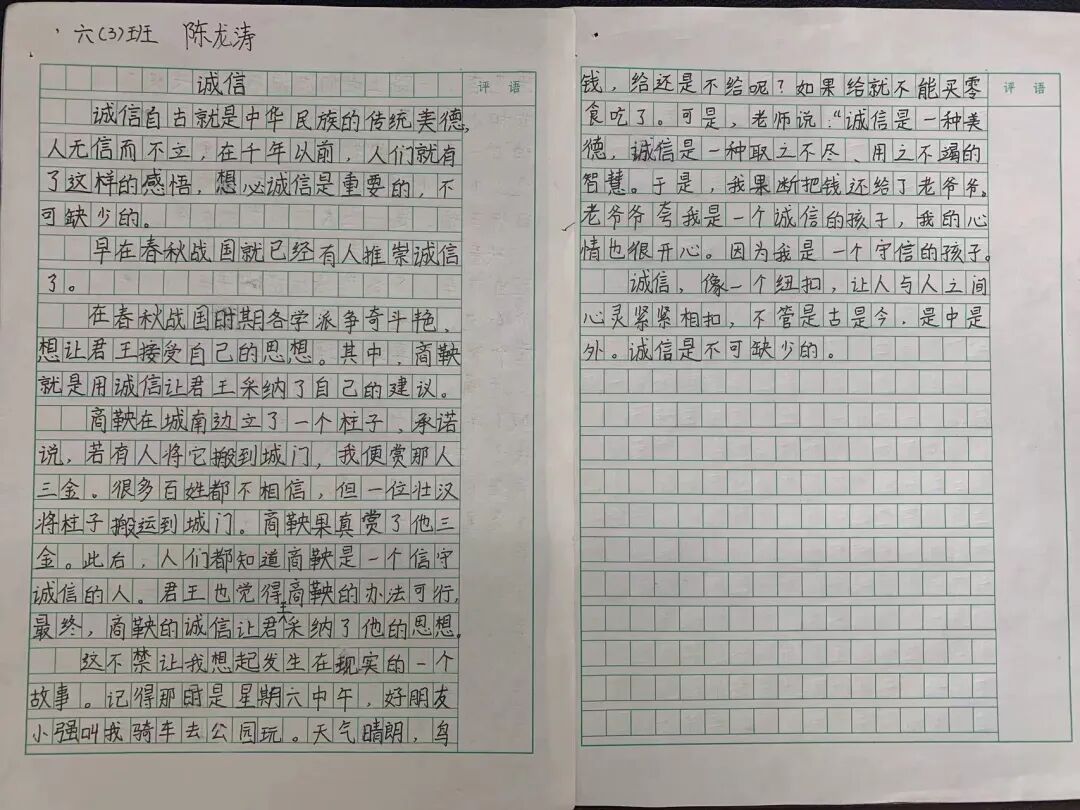 六(3)班 陈龙涛
诚信
评语
诚信自古就是中华民族的传统美德,
人无信而不立，在千年以前，人们就有
了这样的感悟，想必诚信是重要的，不
可缺少的。
早在春秋战国就已经有人推崇诚信
了。
在春秋战国时期各学派争奇斗艳，
想让君王接受自己的思想。其中，商鞅
就是用诚信让君王采纳了自己的建议。
商鞅在城南边立了一个柱子，承诺
说，若有人将它搬到城门，我便赏那人
三金。很多百姓都不相信，但一位壮汉
将柱子搬运到城门。商鞅果真赏了他三
金。此后，人们都知道商鞅是一个信守
诚信的人。君王也觉得商鞅的办法可行,
最终，商鞅的诚信让君王采纳了他的思想。
这不禁让我想起发生在现实的一个
故事。记得那时是星期六中午，好朋友
小强叫我骑车去公园玩。天气晴朗，鸟
评语
钱，给还是不给呢？如果给就不能买零
食吃了。可是，老师说：“诚信是一种美
德，诚信是一种取之不尽、用之不竭的
智慧。于是，我果断把钱还给了老爷爷。
老爷爷夸我是一个诚信的孩子，我的心
情也很开心。因为我是一个守信的孩子。
诚信，像一个纽扣，让人与人之间
心灵紧紧相扣，不管是古是今，是中是
外。诚信是不可缺少的。